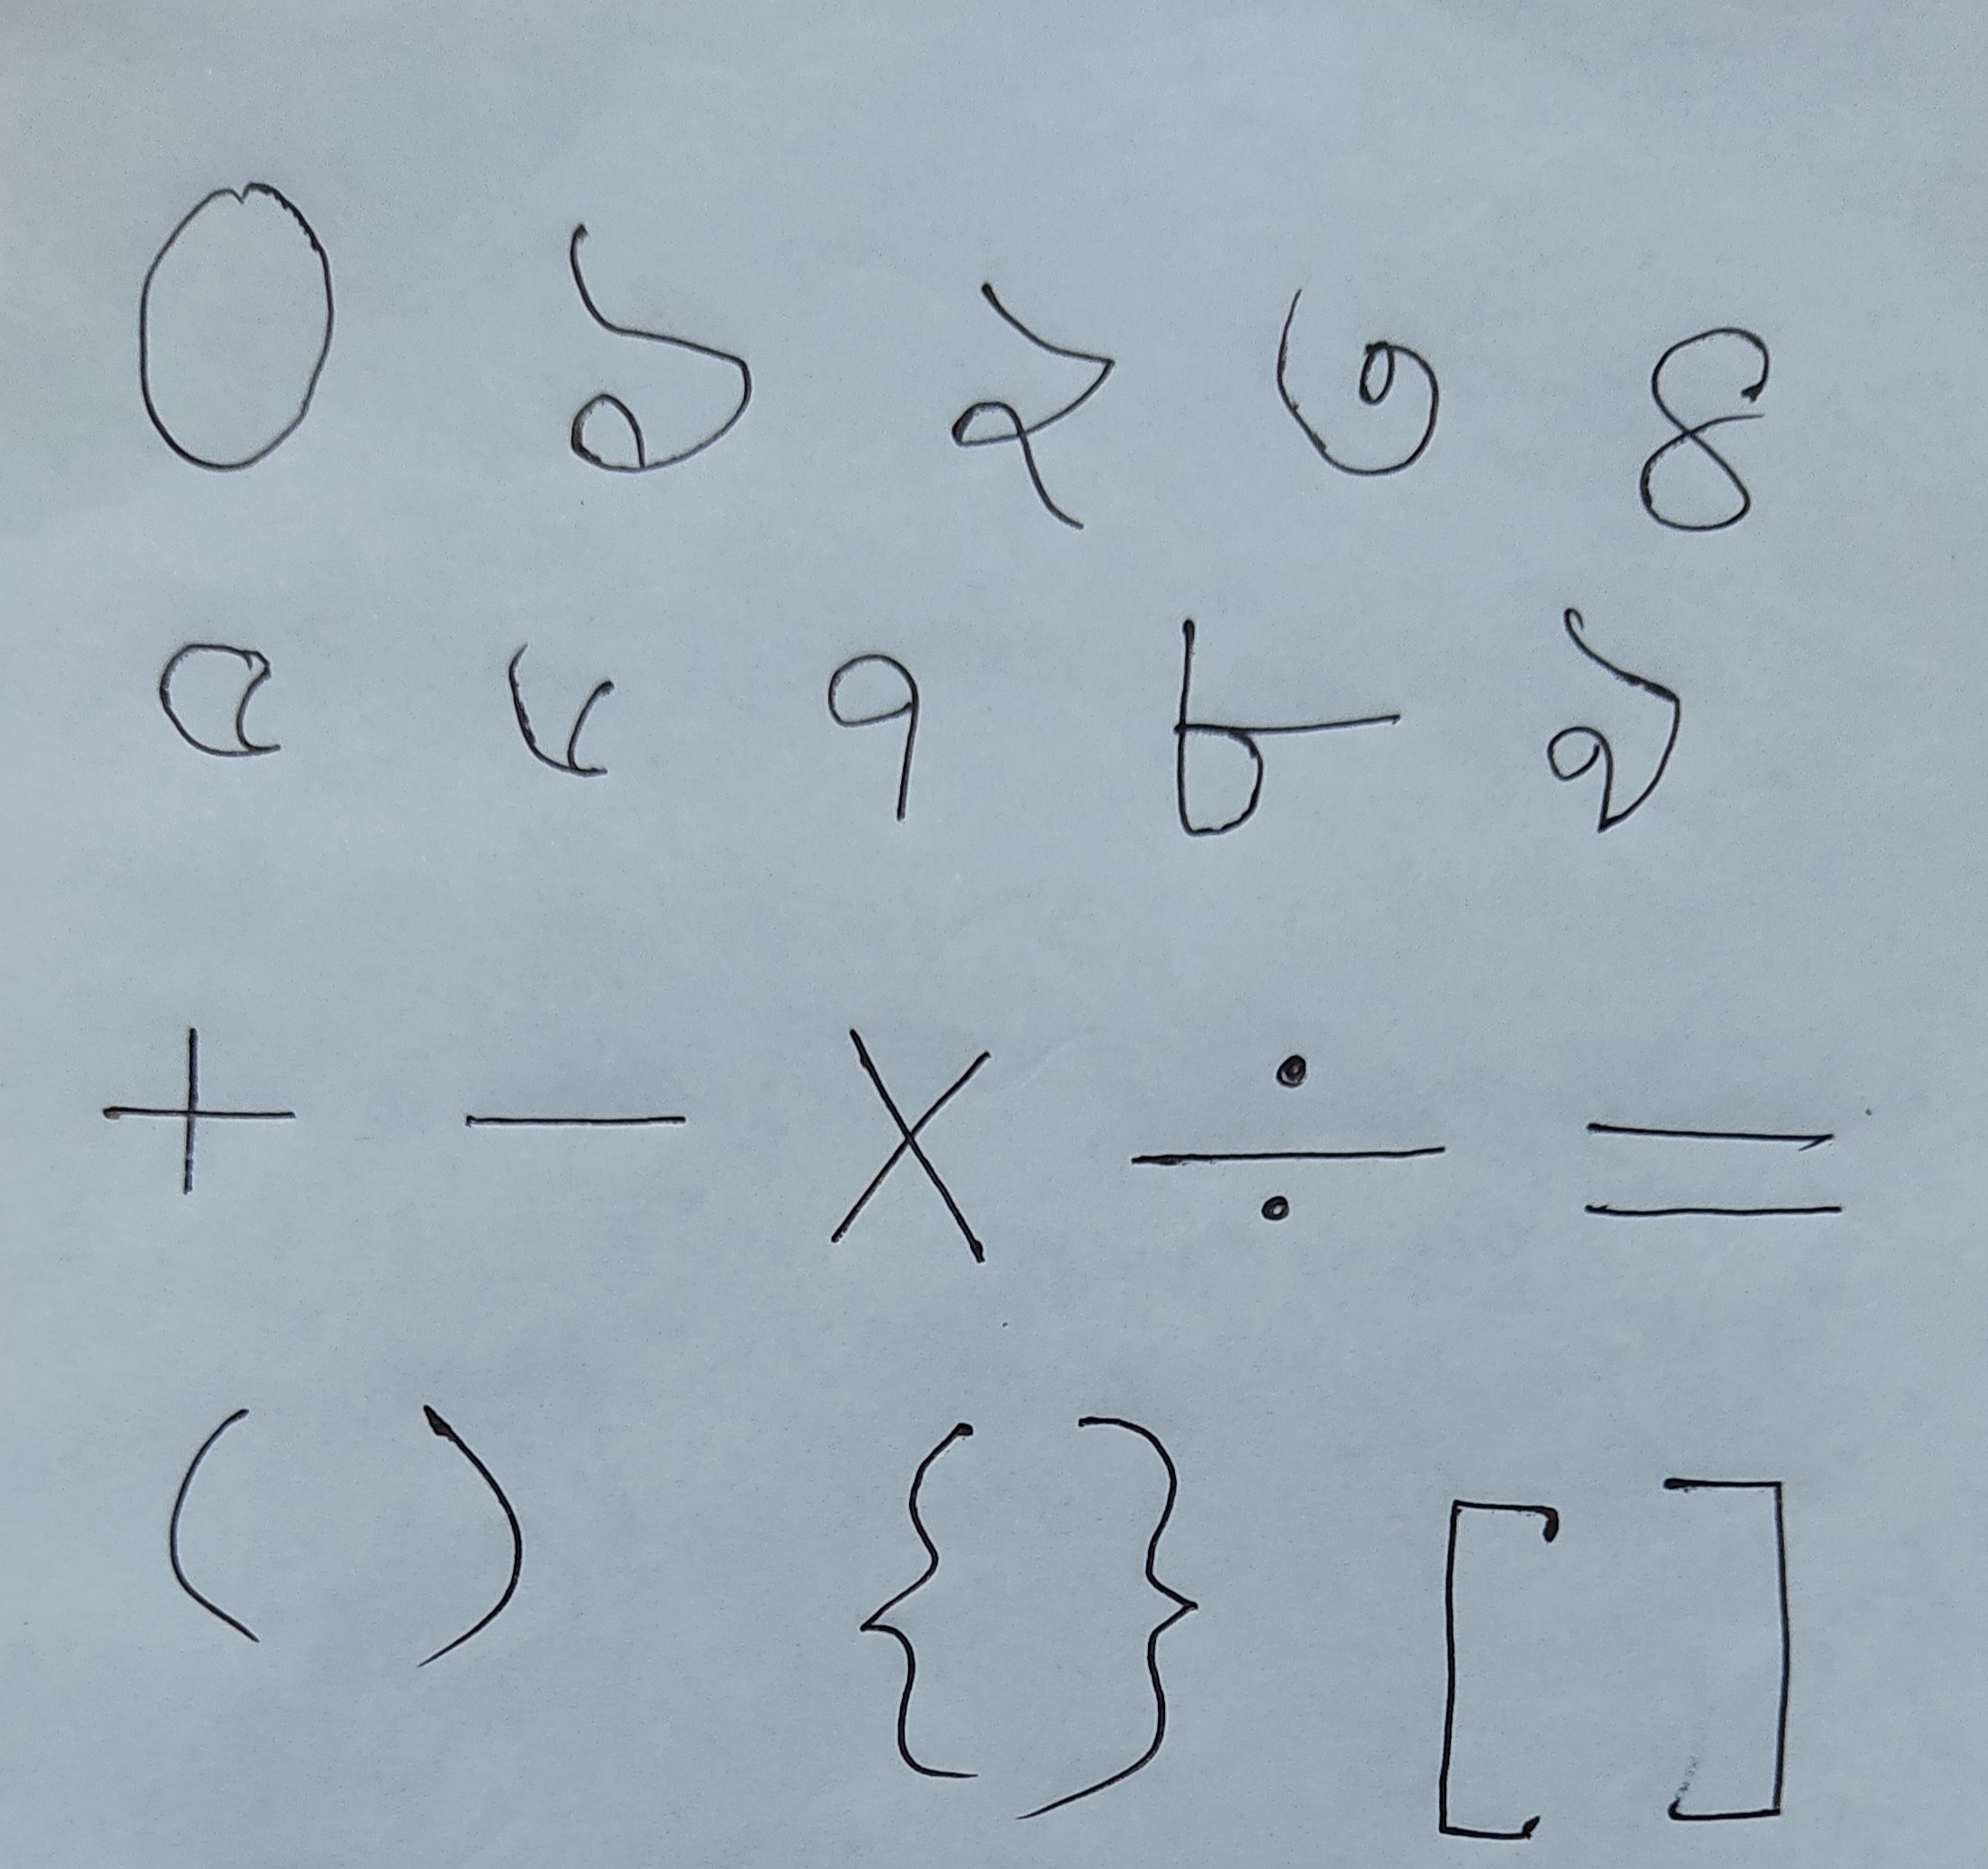 ০ ১ ২ ৩ ৪
৫ ৬ ৭ ৮ ৯
+ − × ÷ =
( ) { } [ ]